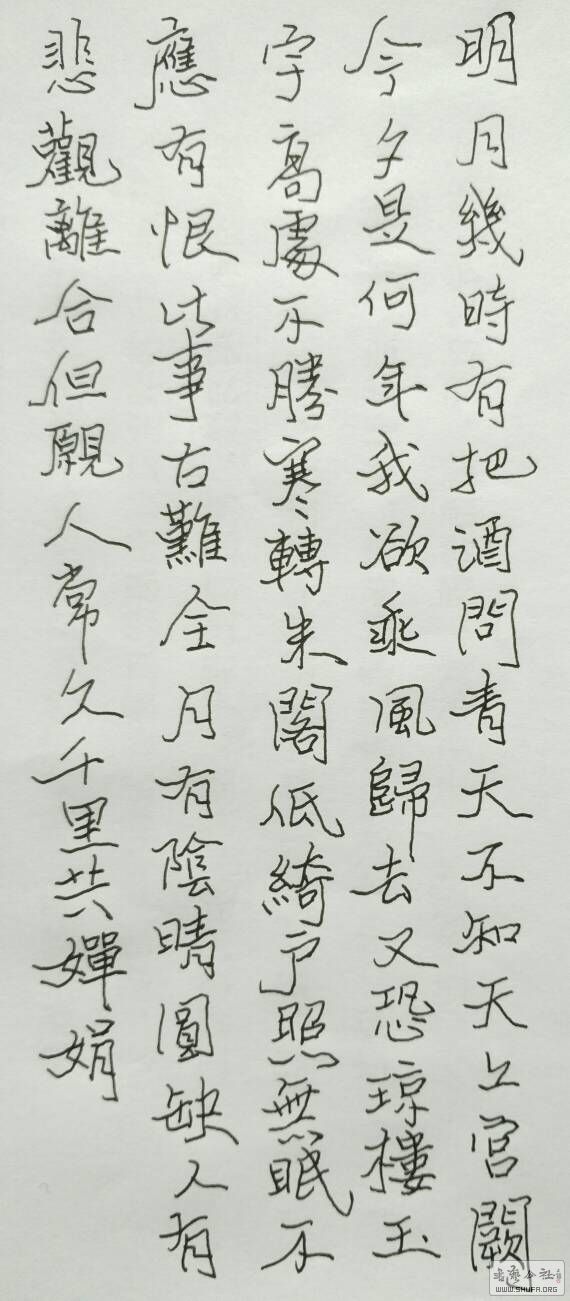 明月幾時有把酒問青天不知天上宫闕
今夕是何年我欲乘風歸去又恐琼樓玉
宇高處不勝寒轉朱閣低綺户照無眠不
應有恨此事古難全月有陰晴圓缺人有
悲觀離合但願人常久千里共嬋娟
书艺公社
WWW.SHUFA.ORG